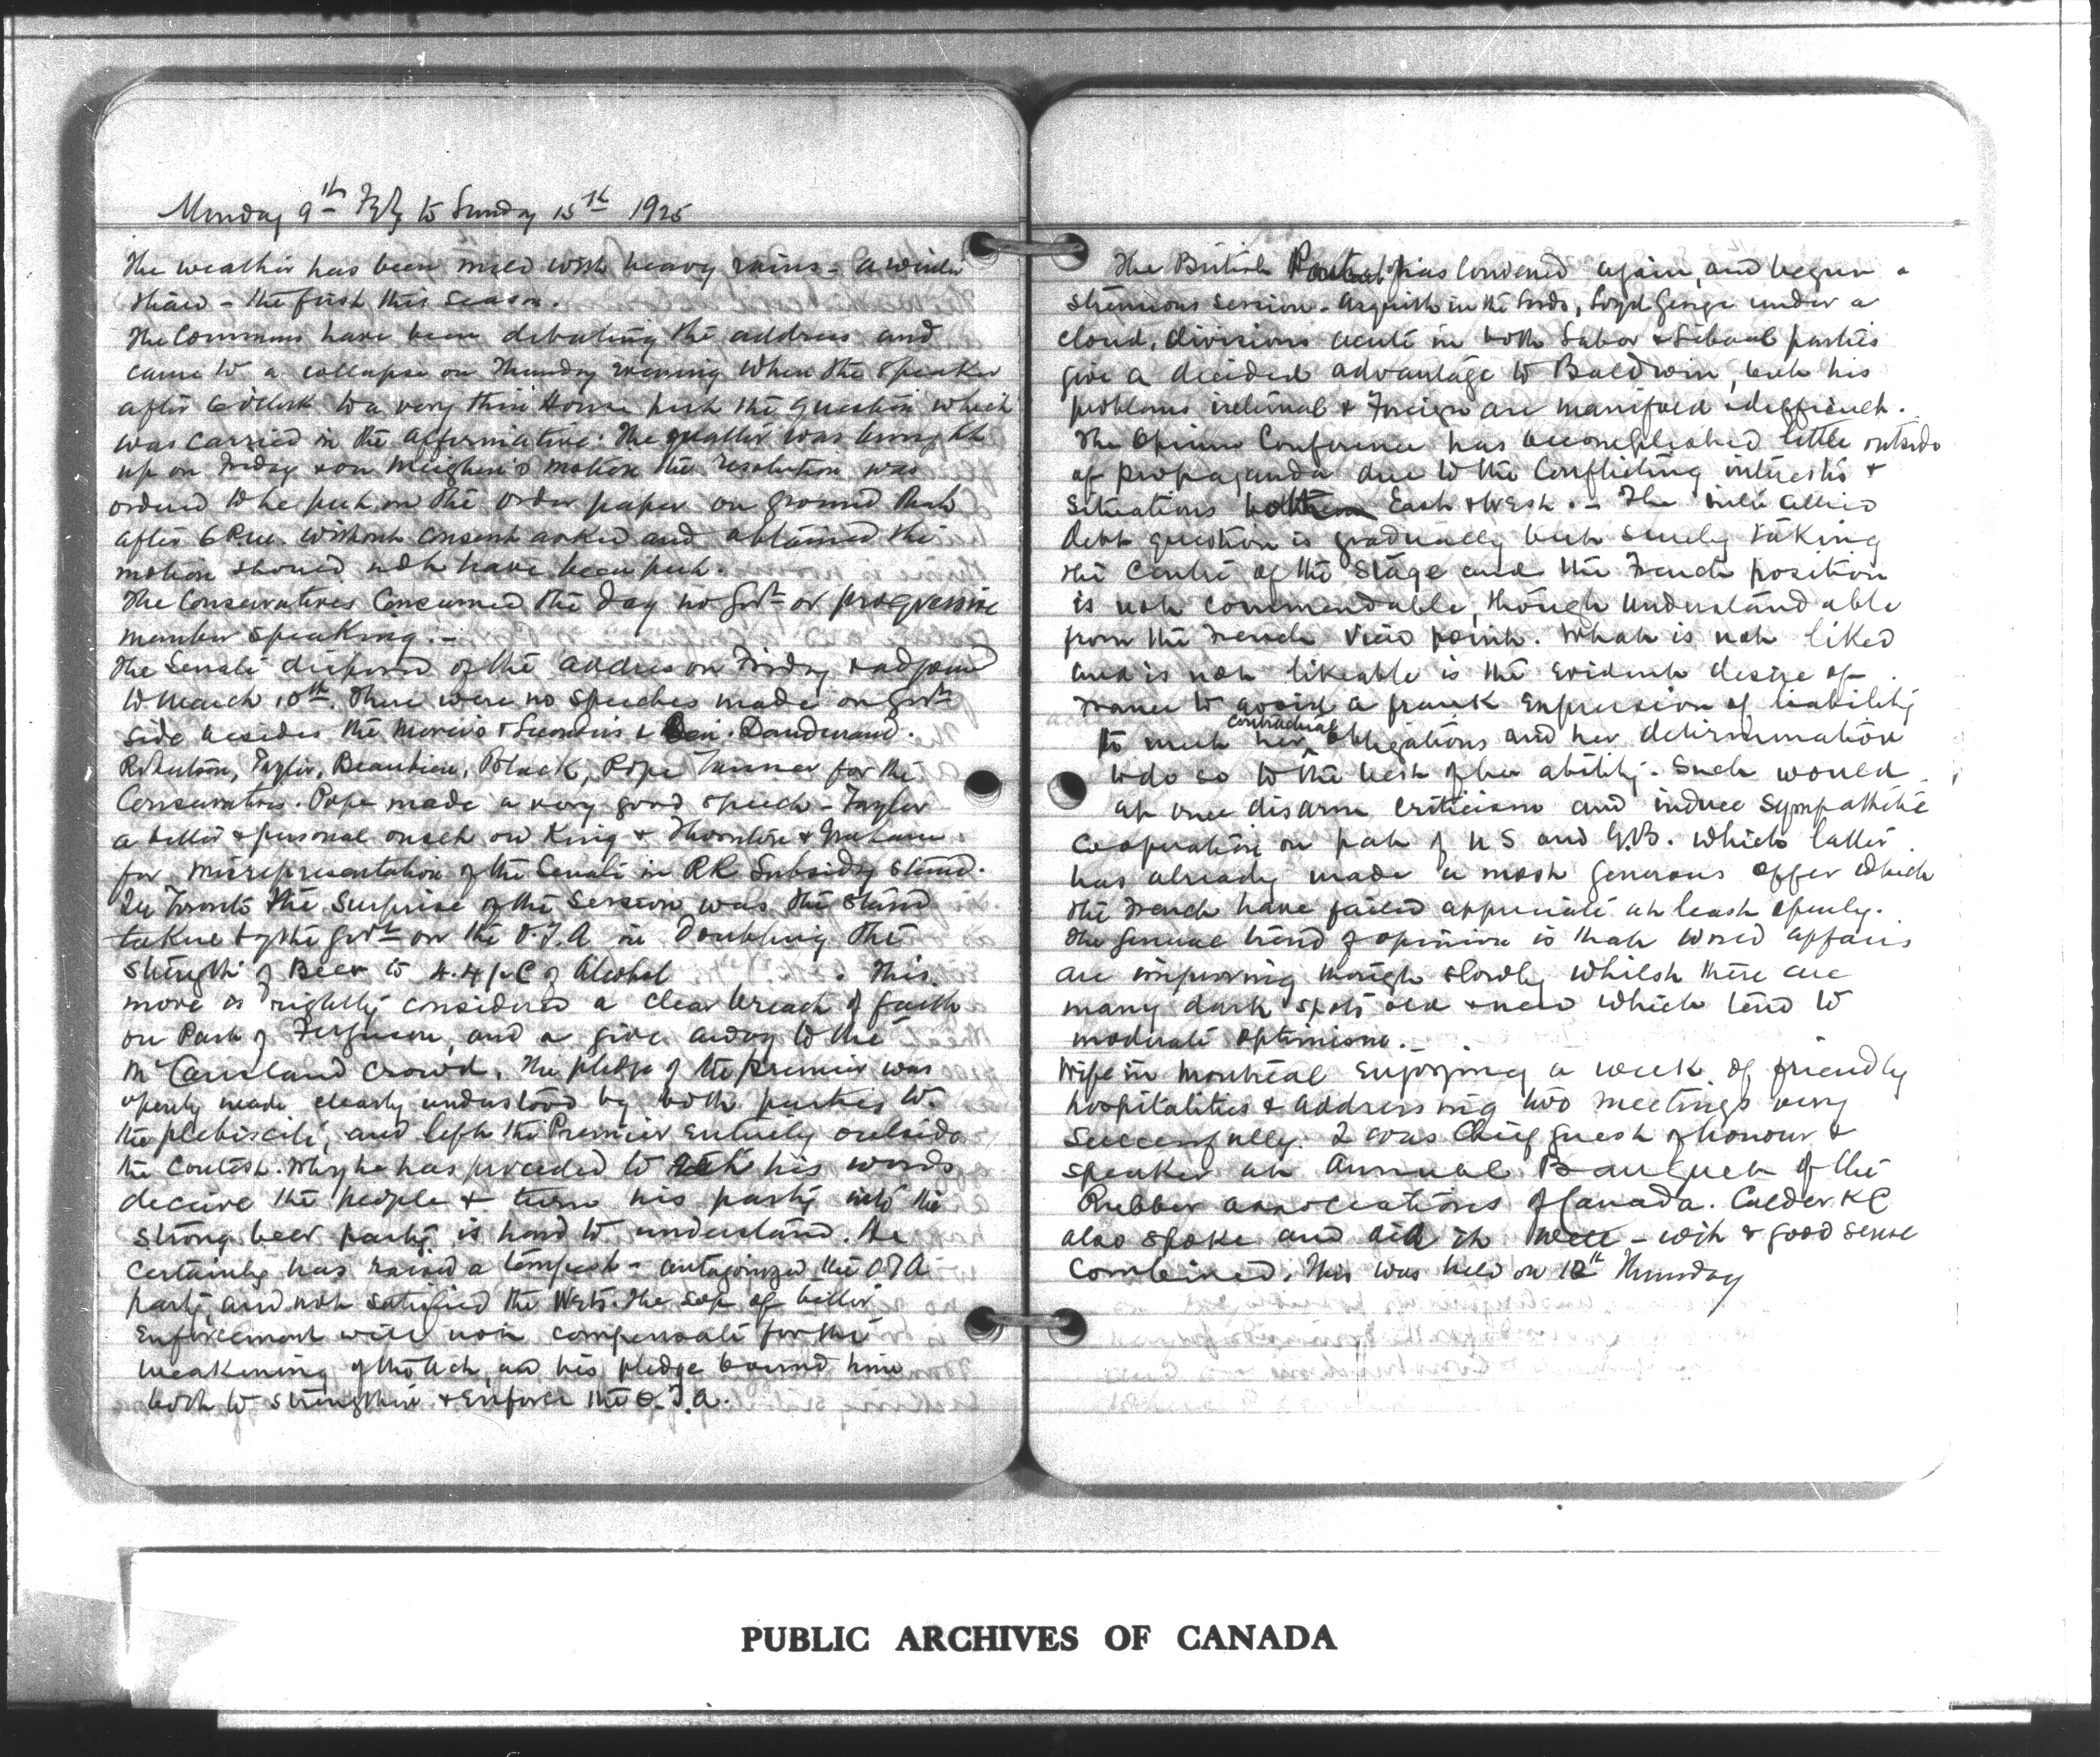 Monday 9th Feby to Sunday 15th 1925
The weather has been mild with heavy rains - a winter
thaw - the first this season.
The Commons have been debating the address and
came to a collapse on Thursday evening when the Speaker
after 6 o'clock to a very thin House put the question which
was carried in the affirmative. The matter was brought
up on Friday & on Meighen's motion the resolution was
ordered to be put on the order paper on ground that
after 6 P.m. without consent asked and obtained the
motion should not have been put.
The Conservatives consumed the day no Govt or progressive
member speaking. -
The Senate disposed of the address on Friday & adjourned
to March 10th. There were no speeches made on Govt
side besides the mover's & Seconder's & Dandurand.
Robertson, Taylor, Beaubien, Black, Pope Tanner for the
Conservatives. Pope made a very good speech - Taylor
a bitter & personal onset on King & Thornton & Graham
for misrepresentation of the Senate in RR Subsidy stand.
In Toronto the surprise of the Session was the stand
taken by the Govt on the O.T.A in doubling the
strength of Beer to 4.4 p.c of Alcohol . This
move is rightly considered a clear breach of faith
on Part of Ferguson, and a give away to the
McCausland crowd. The pledge of the premier was
openly made clearly understood by both parties to
the plebiscite, and left the Premier entirely outside
the contest. Why he has proceeded to eat his words
deceive the people & turn his party into the
strong beer party is hard to understand. He
certainly has raised a tempest - antagonized the OTA
party and not satisfied the Wets. The sop of better
enforcement will not compensate for the
weakening of the Act, and his pledge bound him
both to strengthen & enforce the O.T.A.
The British Parliat has convened again, and begun a
strenuous session. Asquith in the Lords, Loyd George under a
cloud, divisions acute in both Labor & Liberal parties
give a decided advantage to Baldwin, but his
problems internal & Foreign are manifold & difficult.
The Opium Conference has accomplished little outside
of propaganda due to the conflicting interests &
situations East & West. - The inter allied
debt question is gradually but surely taking
the centre of the stage and the French position
is not commendable, though understandable
from the French view point. What is not liked
and is not likeable is the evident desire of
France to avoid a frank expression of liability
to meet her contractual obligations and her determination
to do so to the best of her ability. Such would
at once disarm criticism and induce sympathetic
cooperation on part of U S and G.B. which latter
has already made a most generous offer which
the French have failed appreciate at least openly.
The general trend of opinion is that world affairs
are improving though slowly whilst there are
many dark spots old & new which tend to
moderate optimism. -
Wife in Montreal enjoying a week of friendly
hospitalities & addressing two meetings very
successfully. I was Chief guest of honour &
speaker at Annual Banquet of the
Rubber associations of Canada. Calder KC
also spoke and did it well - wit & good sense
combined. This was held on 12th Thursday
PUBLIC ARCHIVES OF CANADA